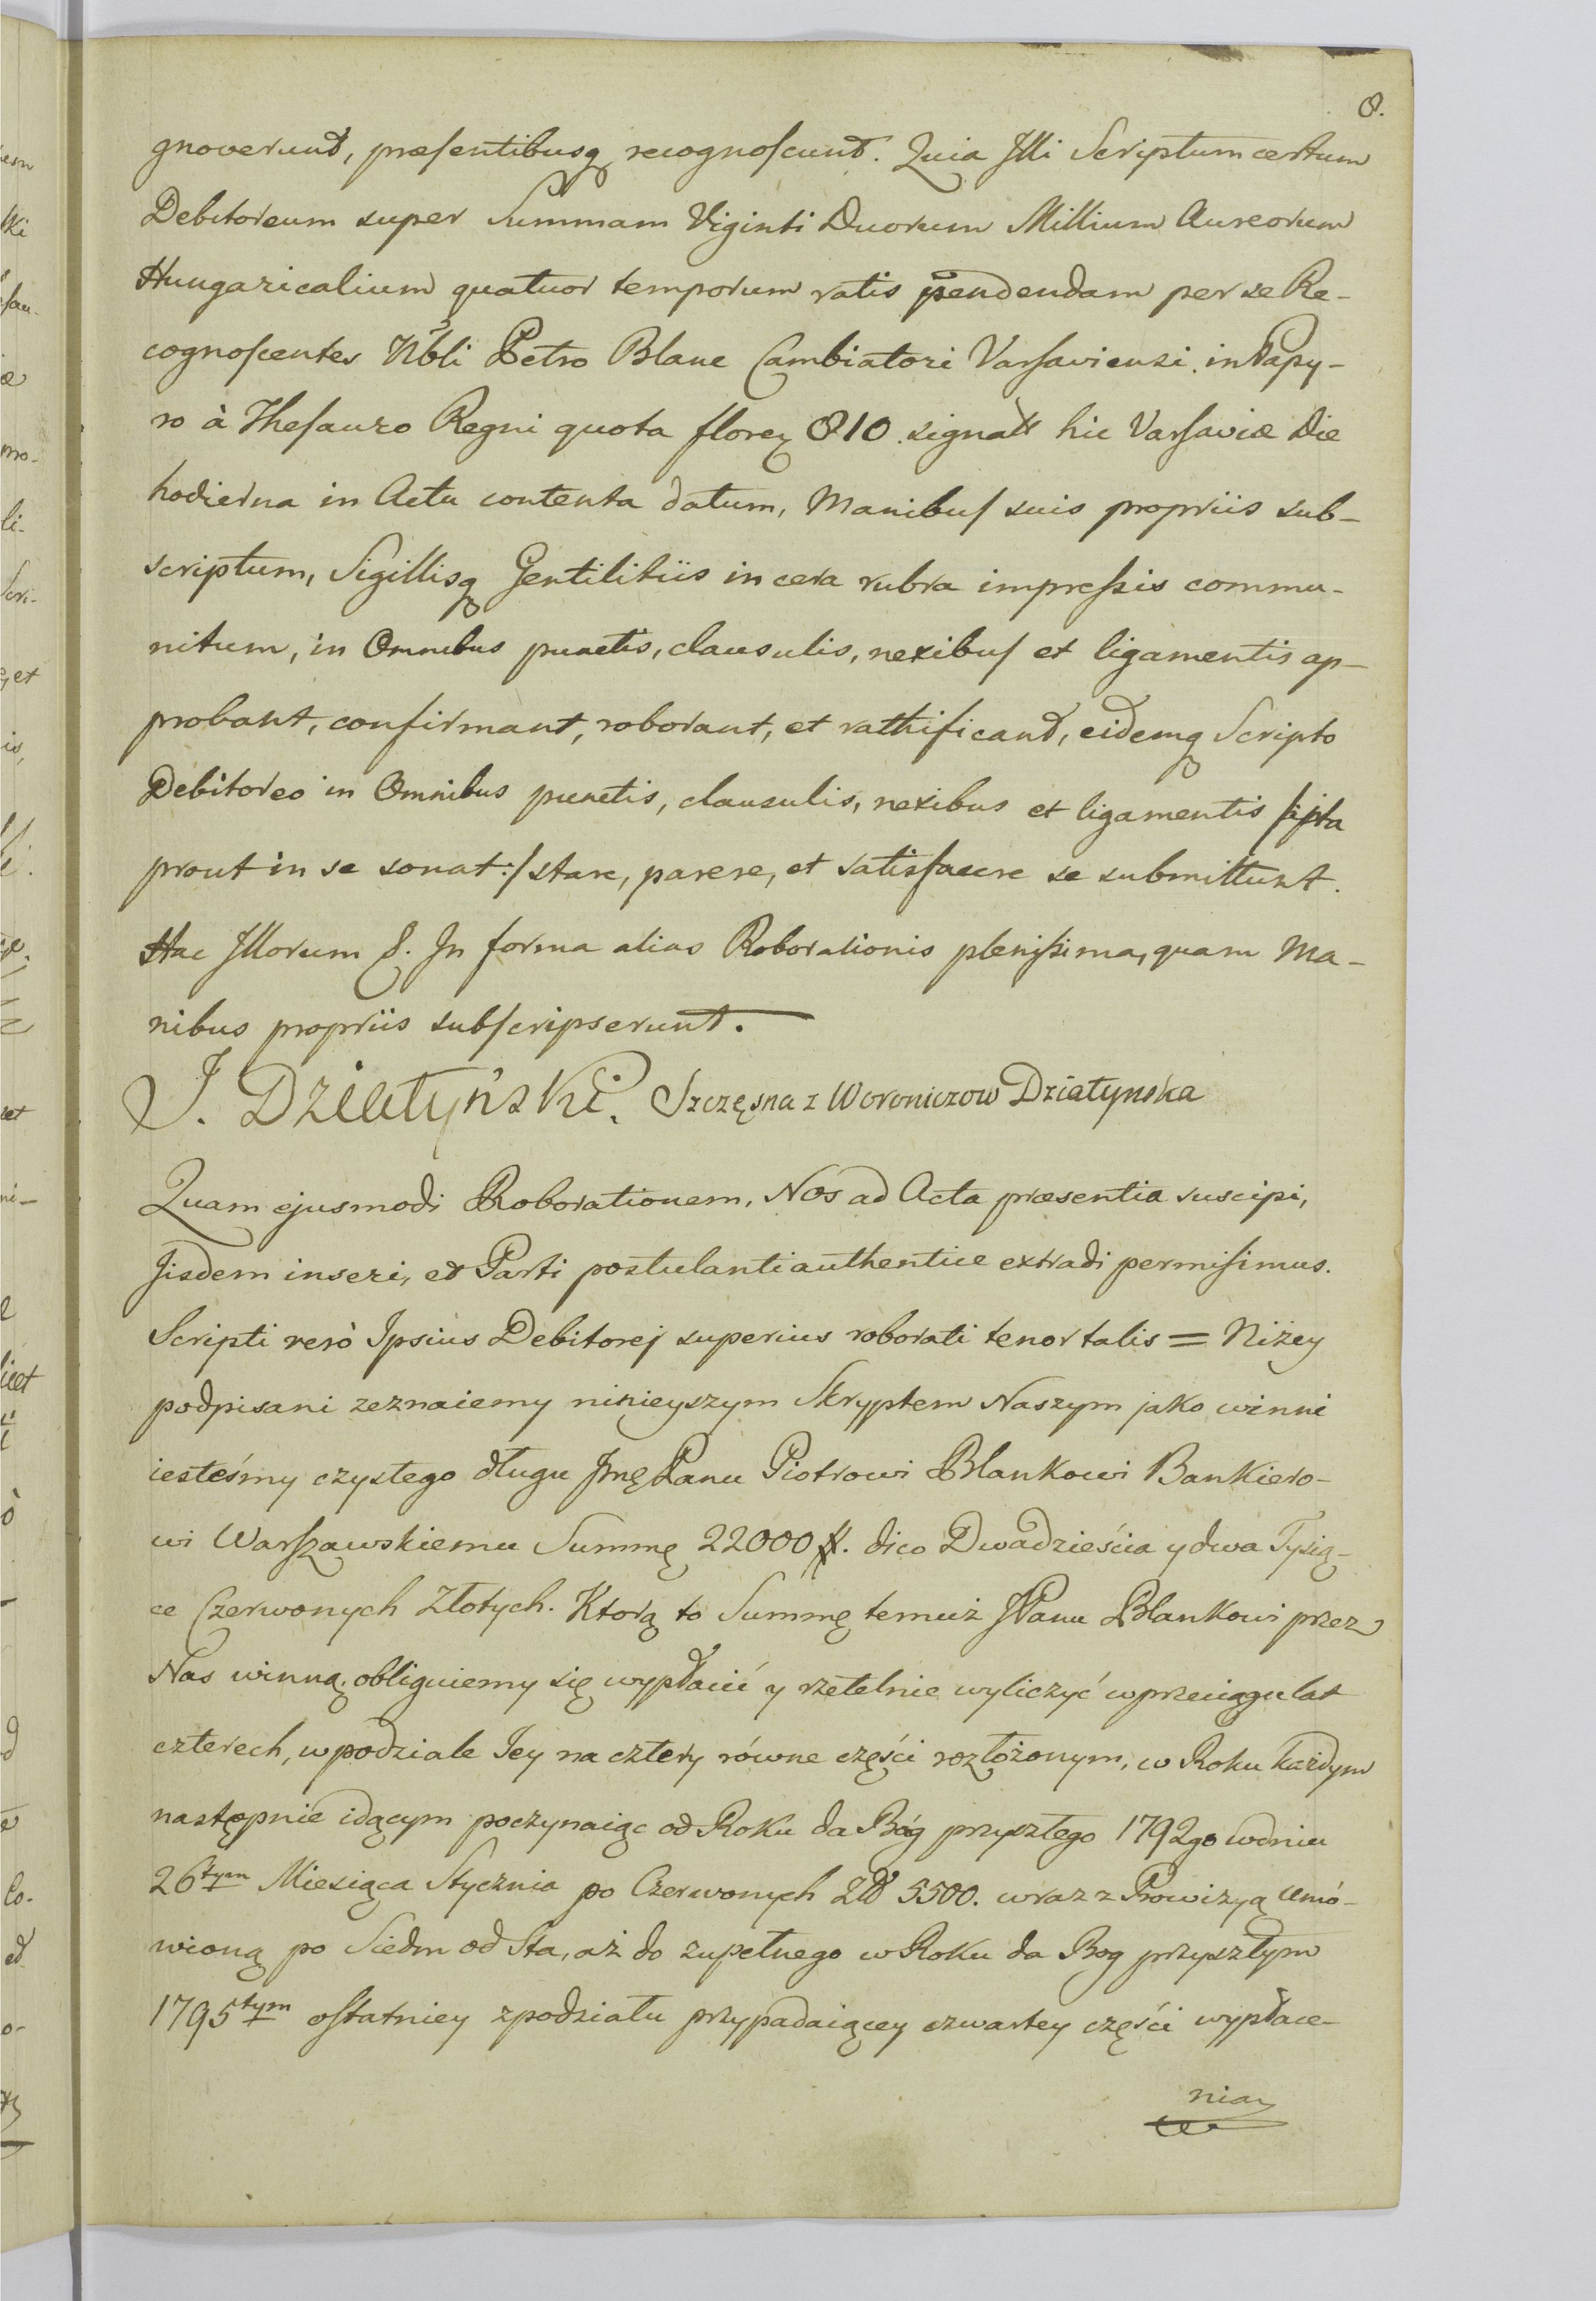 8.
gnoverunt, præsentibusq recognoscunt. Quia Illi Scriptum certum
Debitoreum super Summam Viginti Duorum Millium Aureorum
Hungaricalium quatuor temporum ratis pendendam per se Re-
cognoscentes Nbli Petro Blanc Cambiatori Varsaviensi in Papy-
ro à Thesauro Regni quota floren 810 signatt hic Varsaviæ Die
hodierna in Actu contenta datum, Manibus suis propriis sub-
scriptum, Sigillisq Gentilitiis in cera rubra impressis commu-
nitum, in Omnibus punctis, clausulis, nexibus et ligamentis ap-
probant, confirmant, roborant, et rathificant, eidemq Scripto
Debitoreo in Omnibus punctis, clausulis, nexibus et ligamentis
prout in se sonat:/ stare, parere, et satisfacere se submittunt.
Hac Illorum &. In forma alias Roborationis plenissima, quam Ma-
nibus propriis subscripserunt.
J. Działyński. Szczęsna z Woroniczow Działynska
Quam ejusmodi Roborationem, Nos ad Acta præsentia suscipi,
Iisdem inseri, et Parti postulanti authentice extradi permisimus.
Scripti verò Ipsius Debitorej superius roborati tenor talis = Niżey
podpisani zeznaiemy ninieyszym Skryptem Naszym jako winni
iesteśmy czystego długu Jmę Panu Piotrowi Blankowi Bankiero-
wi Warszawskiemu Summę 22000 #. dico Dwadzieścia y dwa Tysią-
ce Czerwonych Złotych. Ktorą to Summę temuż JPanu Blankowi przez
Nas winną, obliguiemy się wypłacić y rzetelnie wyliczyć w przeciągu lat
czterech, w podziale Jey na cztery równe części rozłożonym, w Roku każdym
następnie idącym poczynaiąc od Roku da Bóg przyszłego 1792go w dniu
26tym Miesiąca Stycznia po Czerwonych Złł 5500. wraz z Prowizyą umó-
wioną po Siedm od Sta, aż do zupełnego w Roku da Bog przyszłym
1795tym ostatniey z podziału przypadaiącey czwartey części wypłace-
nia